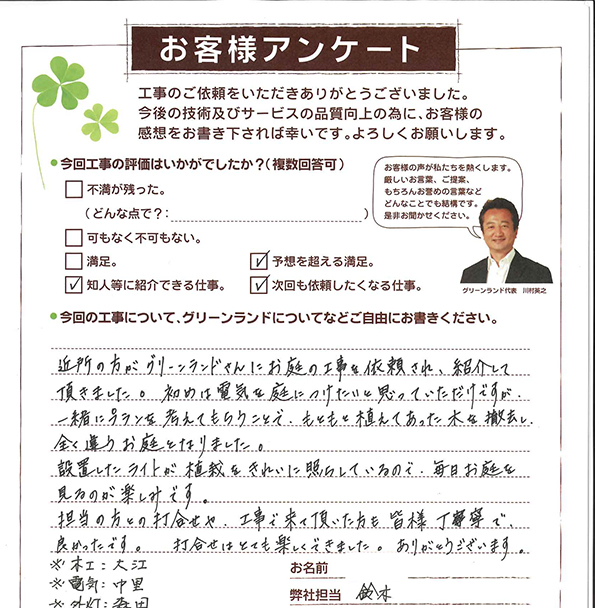 お客様アンケート
工事のご依頼をいただきありがとうございました。
今後の技術及びサービスの品質向上の為に、お客様の
感想をお書き下されば幸いです。よろしくお願いします。
●今回工事の評価はいかがでしたか?(複数回答可)
不満が残った。
(どんな点で?: )
可もなく不可もない。
満足。
予想を超える満足。
知人等に紹介できる仕事。
次回も依頼したくなる仕事。
お客様の声が私たちを熱くします。
厳しいお言葉、ご提案、
もちろんお誉めの言葉など
どんなことでも結構です。
是非お聞かせください。
グリーンランド代表 川村英之
●今回の工事について、グリーンランドについてなどご自由にお書きください。
近所の方がグリーンランドさんにお庭の工事を依頼され、紹介して
頂きました。初めは電気を庭につけたいと思っていただけですが、
一緒にプランを考えてもらうことで、もともと植えてあった木を撤去し、
全く違うお庭となりました。
設置したライトが植栽をきれいに照らしているので、毎日お庭を
見るのが楽しみです。
担当の方との打合せや、工事で来て頂いた方も皆様丁寧で、
良かったです。 打合せはとても楽しくできました。ありがとうございます。
※木工:大江
※電気:中里
※外灯:
お名前
弊社担当 鈴木